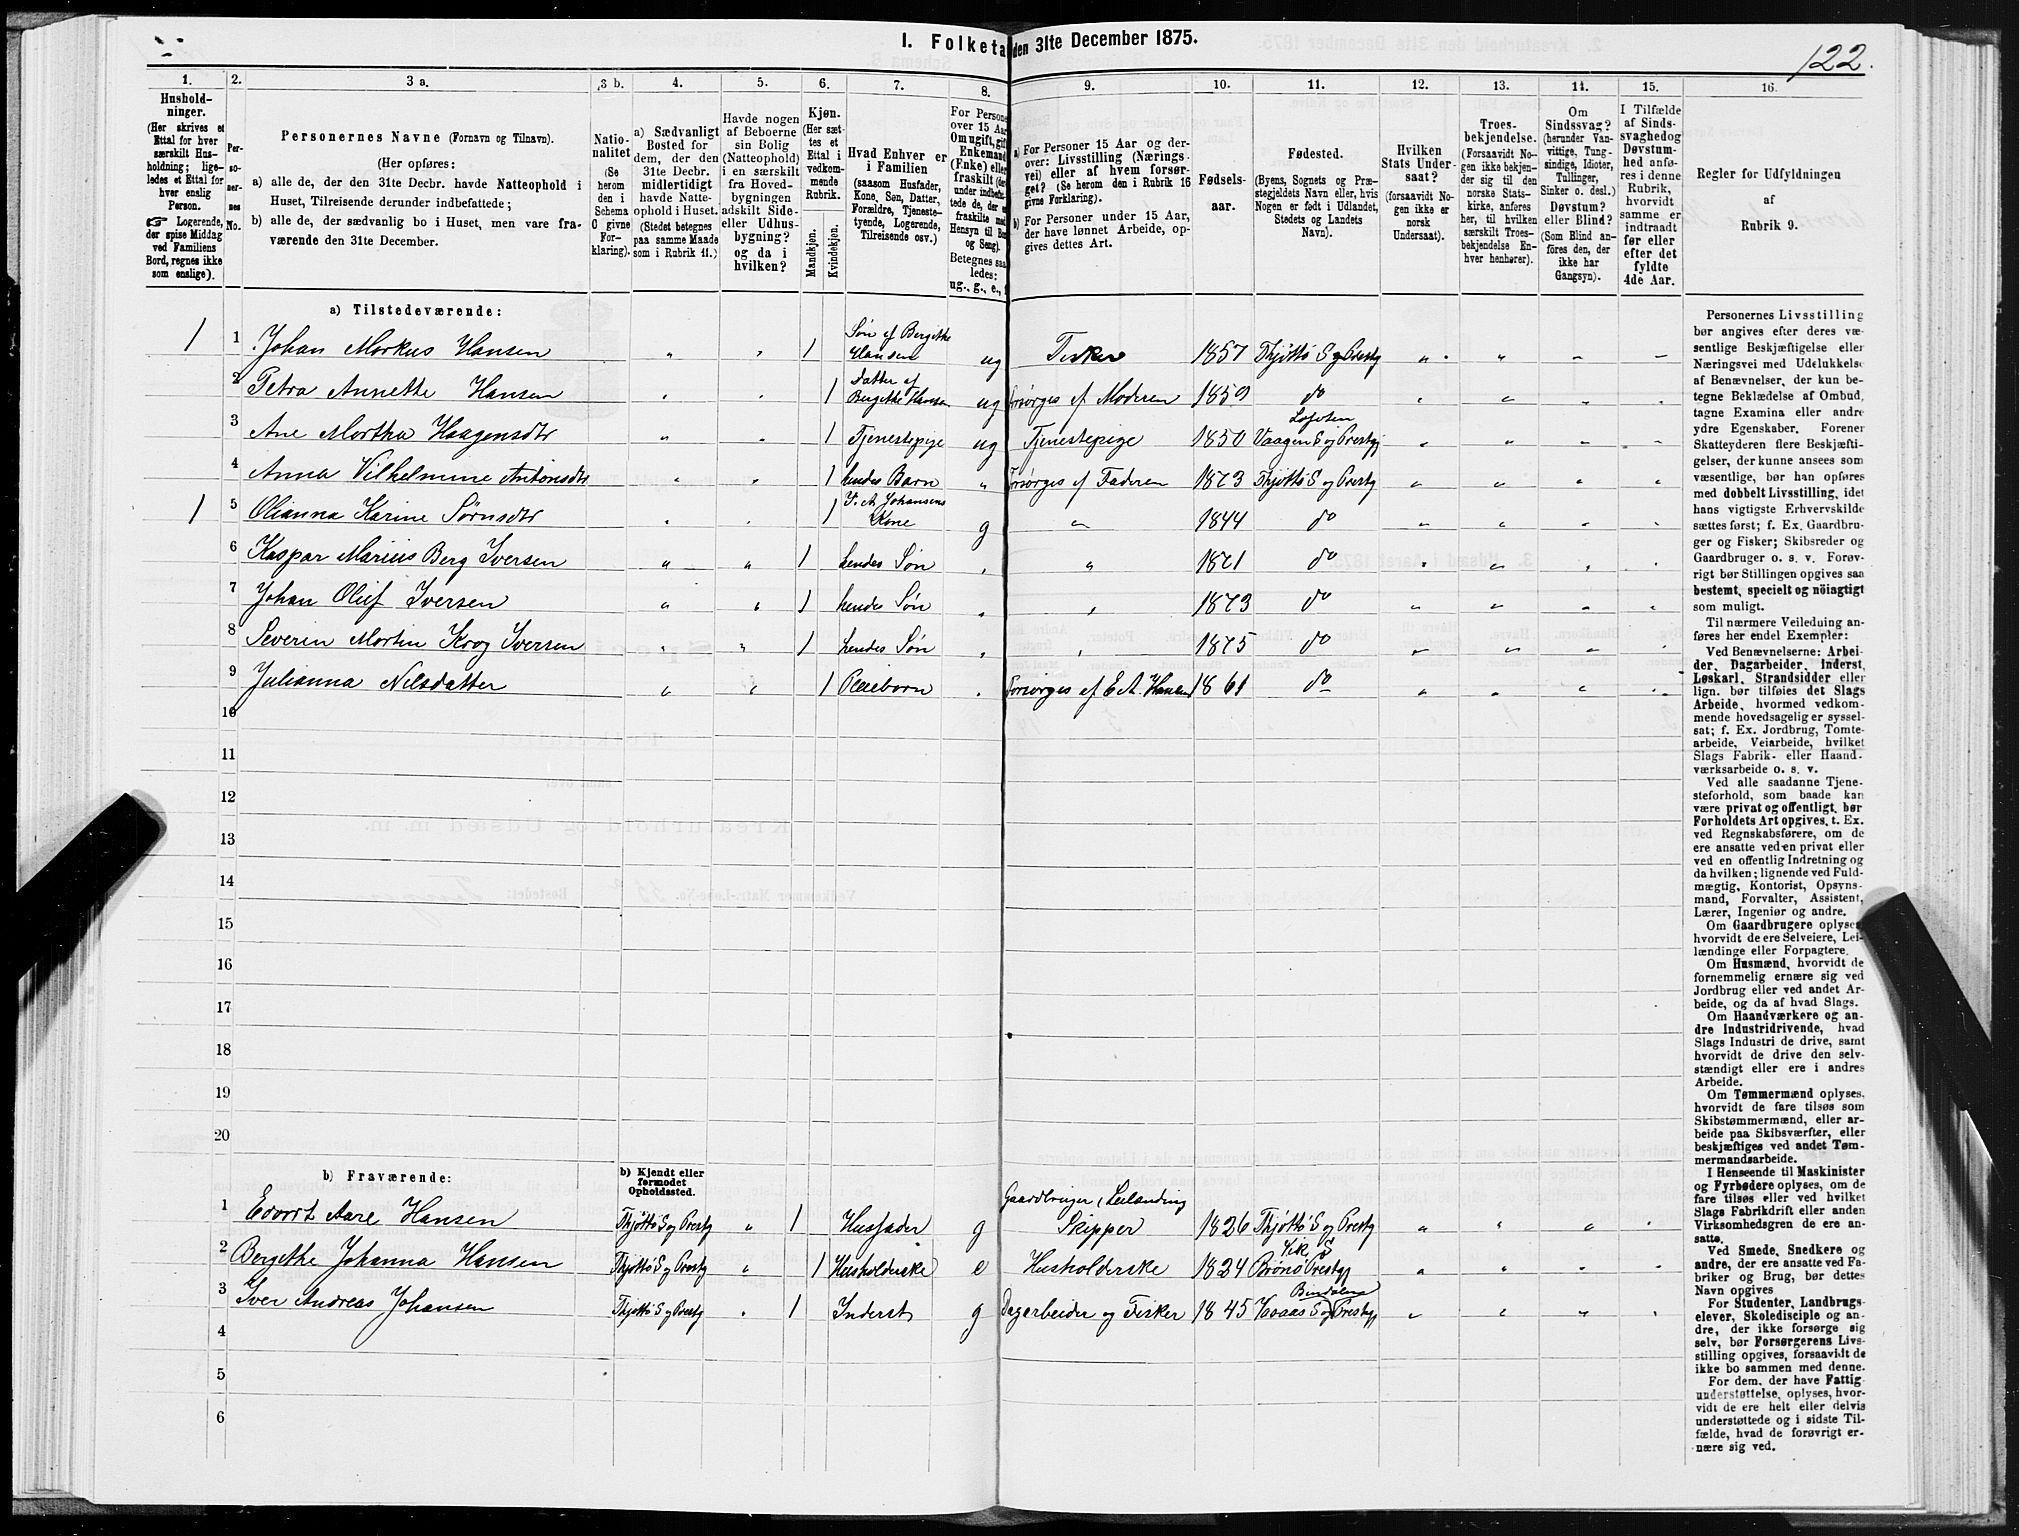 I. Folketa den 31te December 1875.
122.
1. 2. 3 a. 3 b. 4. 5. 6. 7. 8. 9. 10. 11. 12. 13. 14. 15. 16.
Hushold-
ninger.
(Her skrives et
Ettal for hver
særskilt Hus-
holdning; lige-
ledes et Ettal for
hver enslig
Person.
Logerende,
der spise Middag
ved Familiens
Bord, regnes ikke
som enslige).
Per-
so-
ner-
nes
No.
Personernes Navne (Fornavn og Tilnavn).
(Her opføres:
a) alle de, der den 31te Decbr. havde Natteophold i
Huset, Tilreisende derunder indbefattede;
b) alle de, der sædvanlig bo i Huset, men vare fra-
værende den 31te December.
Natio-
nalitet
(Se
herom
den i
Schema
O givne
For-
klaring).
a) Sædvanligt
Bosted for
dem, der den
31te Decbr.
midlertidigt
havde Natte-
ophold i Huset.
(Stedet betegnes
paa samme Maade
som i Rubrik 11.)
Havde nogen
af Beboerne
sin Bolig
(Natteophold)
i en særskilt
fra Hoved-
bygningen
adskilt Side-
eller Udhus-
bygning?
og da i
hvilken?
Kjøn.
(Her sæt-
tes et
Ettal i
vedkom-
mende
Rubrik.
Mandkjøn.
Kvindekjøn.
Hvad Enhver er
i Familien
(saasom Husfader,
Kone, Søn, Datter,
Forældre, Tjeneste-
tyende, Logerende,
Tilreisende osv.)
For Persone
over 15 Aar
Om ugift, gift
Enkemand
(Enke) eller
fraskilt (de
under indbefat-
tede de, der e
fraskilte med
Hensyn til Bo
og Seng).
Betegnes saa
ledes:
ug., g., e., f
a) For Personer 15 Aar og der-
over: Livsstilling (Nærings-
vei) eller af hvem forsør-
get? (Se herom den i Rubrik 16
givne Forklaring).
b) For Personer under 15 Aar,
der have lønnet Arbeide, op-
gives dettes Art.
Fødsels-
aar.
Fødested.
(Byens, Sognets og Præ-
stegjeldets Navn eller, hvis
Nogen er født i Udlandet,
Stedets og Landets
Navn).
Hvilken
Stats Under-
saat?
(forsaavidt No-
gen ikke er
norsk
Undersaat).
Troes-
bekjendelse.
(Forsaavidt No-
gen ikke bekjen-
der sig til den
norske Stats-
kirke, anføres
her, til hvilken
særskilt Troes-
bekjendelse En-
hver henhører).
Om
Sindssvag?
(herunder Van-
vittige, Tung-
sindige, Idioter,
Tullinger,
Sinker o. desl.)
Døvstum?
eller Blind?
(Som Blind an-
føres den, der
ikke har
Gangsyn).
I Tilfælde
af Sinds-
svaghed og
Døvstum-
hed anfø-
res i denne
Rubrik,
hvorvidt
samme er
indtraadt
før eller
efter det
fyldte
4de Aar.
Regler for Udfyldningen
af
Rubrik 9.
a) Tilstedeværende:
1 1 Johan Markus Hansen " " 1 Søn af Bergethe Hansen ug Fisker 1857 Thjøttø S og Prestg " " " "
2 Petra Annette Hansen " " 1 Datter af Bergethe Hansen ug Forsørges af Moderen 1859 do " " " "
3 Ane Martha Haagensdtr " " 1 Tjenestepige ug Tjenestepige 1850 Lofoten Vaagen S og Prestgj " " " "
4 Anna Vilhelmine Antonsdtr " " 1 hendes Barn " Forsørges af Faderen 1873 Thjøttø S og Prestg " " " "
1 5 Olianna Karine Sørnsdtr " " 1 I. A. Johansens Kone g " 1844 do " " " "
6 Kaspar Marius Berg Iversen " " 1 hendes Søn " " 1871 do " " " "
7 Johan Oluf Iversen " " 1 hendes Søn " " 1873 do " " " "
8 Severin Martin Krog Iversen " " 1 hendes Søn " " 1875 do " " " "
9 Julianna Nilsdatter " " 1 Pleiebarn " Forsørges af E A. Hansen 1861 do " " " "
10
11
12
13
14
15
16
17
18
19
20
b) Fraværende:
b) Kjendt eller
formodet
Opholdssted.
1 Edvart Aare Hansen Thjøttø S og Prestg " 1 Husfader g Gaardbruger, Leilænding Skipper 1826 Thjøttø S og Prestg " " " "
2 Bergethe Johanna Hansen Thjøttø S og Prestg " 1 Husholderske e Husholderske 1824 Vik S Brønø Prestgj " " " "
3 Iver Andreas Johansen Thjøttø S og Prestg " 1 Inderst g Dagarbeider og Fisker 1845 Bindalen Vaaas S og Prestgj " " " "
4
5
6
Personernes Livsstilling
bør angives efter deres væ-
sentlige Beskjæftigelse eller
Næringsvei med Udelukkelse
af Benævnelser, der kun be-
tegne Beklædelse af Ombud,
tagne Examina eller andre
ydre Egenskaber. Forener
Skatteyderen flere Beskjæfti-
gelser, der kunne ansees som
væsentlige, bør han opføres
med dobbelt Livsstilling, idet
hans vigtigste Erhvervskilde
sættes først; f. Ex. Gaardbru-
ger og Fisker; Skibsreder og
Gaardbruger o. s. v. Forøv-
rigt bør Stillingen opgives saa
bestemt, specielt og nöiagtigt
som muligt.
Til nærmere Veiledning an-
føres her endel Exempler:
Ved Benævnelserne: Arbei-
der, Dagarbeider, Inderst,
Løskarl, Strandsidder eller
lign. bør tilføies det Slags
Arbeide, hvormed vedkom-
mende hovedsagelig er syssel-
sat; f. Ex. Jordbrug, Tomte-
arbeide, Veiarbeide, hvilket
Slags Fabrik- eller Haand-
værksarbeide o. s. v.
Ved alle saadanne Tjene-
steforhold, som baade kan
være privat og offentligt, bør
Forholdets Art opgives, t. Ex.
ved Regnskabsførere, om de
ere ansatte ved en privat eller
ved en offentlig Indretning og
da hvilken; lignende ved Fuld-
mægtig, Kontorist, Opsyns-
mand, Forvalter, Assistent,
Lærer, Ingeniør og andre.
Om Gaardbrugere oplyses,
hvorvidt de ere Selveiere, Lei-
lændinge eller Forpagtere.
Om Husmænd, hvorvidt de
fornemmelig ernære sig ved
Jordbrug eller ved andet Ar-
beide, og da af hvad Slags.
Om Haandværkere og an-
dre Industridrivende, hvad
Slags Industri de drive, samt
hvorvidt de drive den selv-
stændigt eller ere i andres
Arbeide.
Om Tømmermænd oplyses,
hvorvidt de fare tilsøs som
Skibstømmermænd, eller ar-
beide paa Skibsværfter, eller
beskjæftiges ved andet Tøm-
mermandsarbeide.
I Henseende til Maskinister
og Fyrbødere oplyses, om de
fare tilsøs eller ved hvilket
Slags Fabrikdrift eller anden
Virksomhedsgren de ere an-
satte.
Ved Smede, Snedkere og
andre, der ere ansatte ved Fa-
briker og Brug, bør dettes
Navn opgives
For Studenter, Landbrugs-
elever, Skoledisciple og an-
dre, der ikke forsørge sig
selv, bør Forsørgerens Livs-
stilling opgives, forsaavidt de
ikke bo sammen med denne.
For dem, der have Fattig-
understøttelse, oplyses, hvor-
vidt de ere helt eller delvis
understøttede og i sidste Til-
fælde, hvad de forøvrigt er-
nære sig ved.